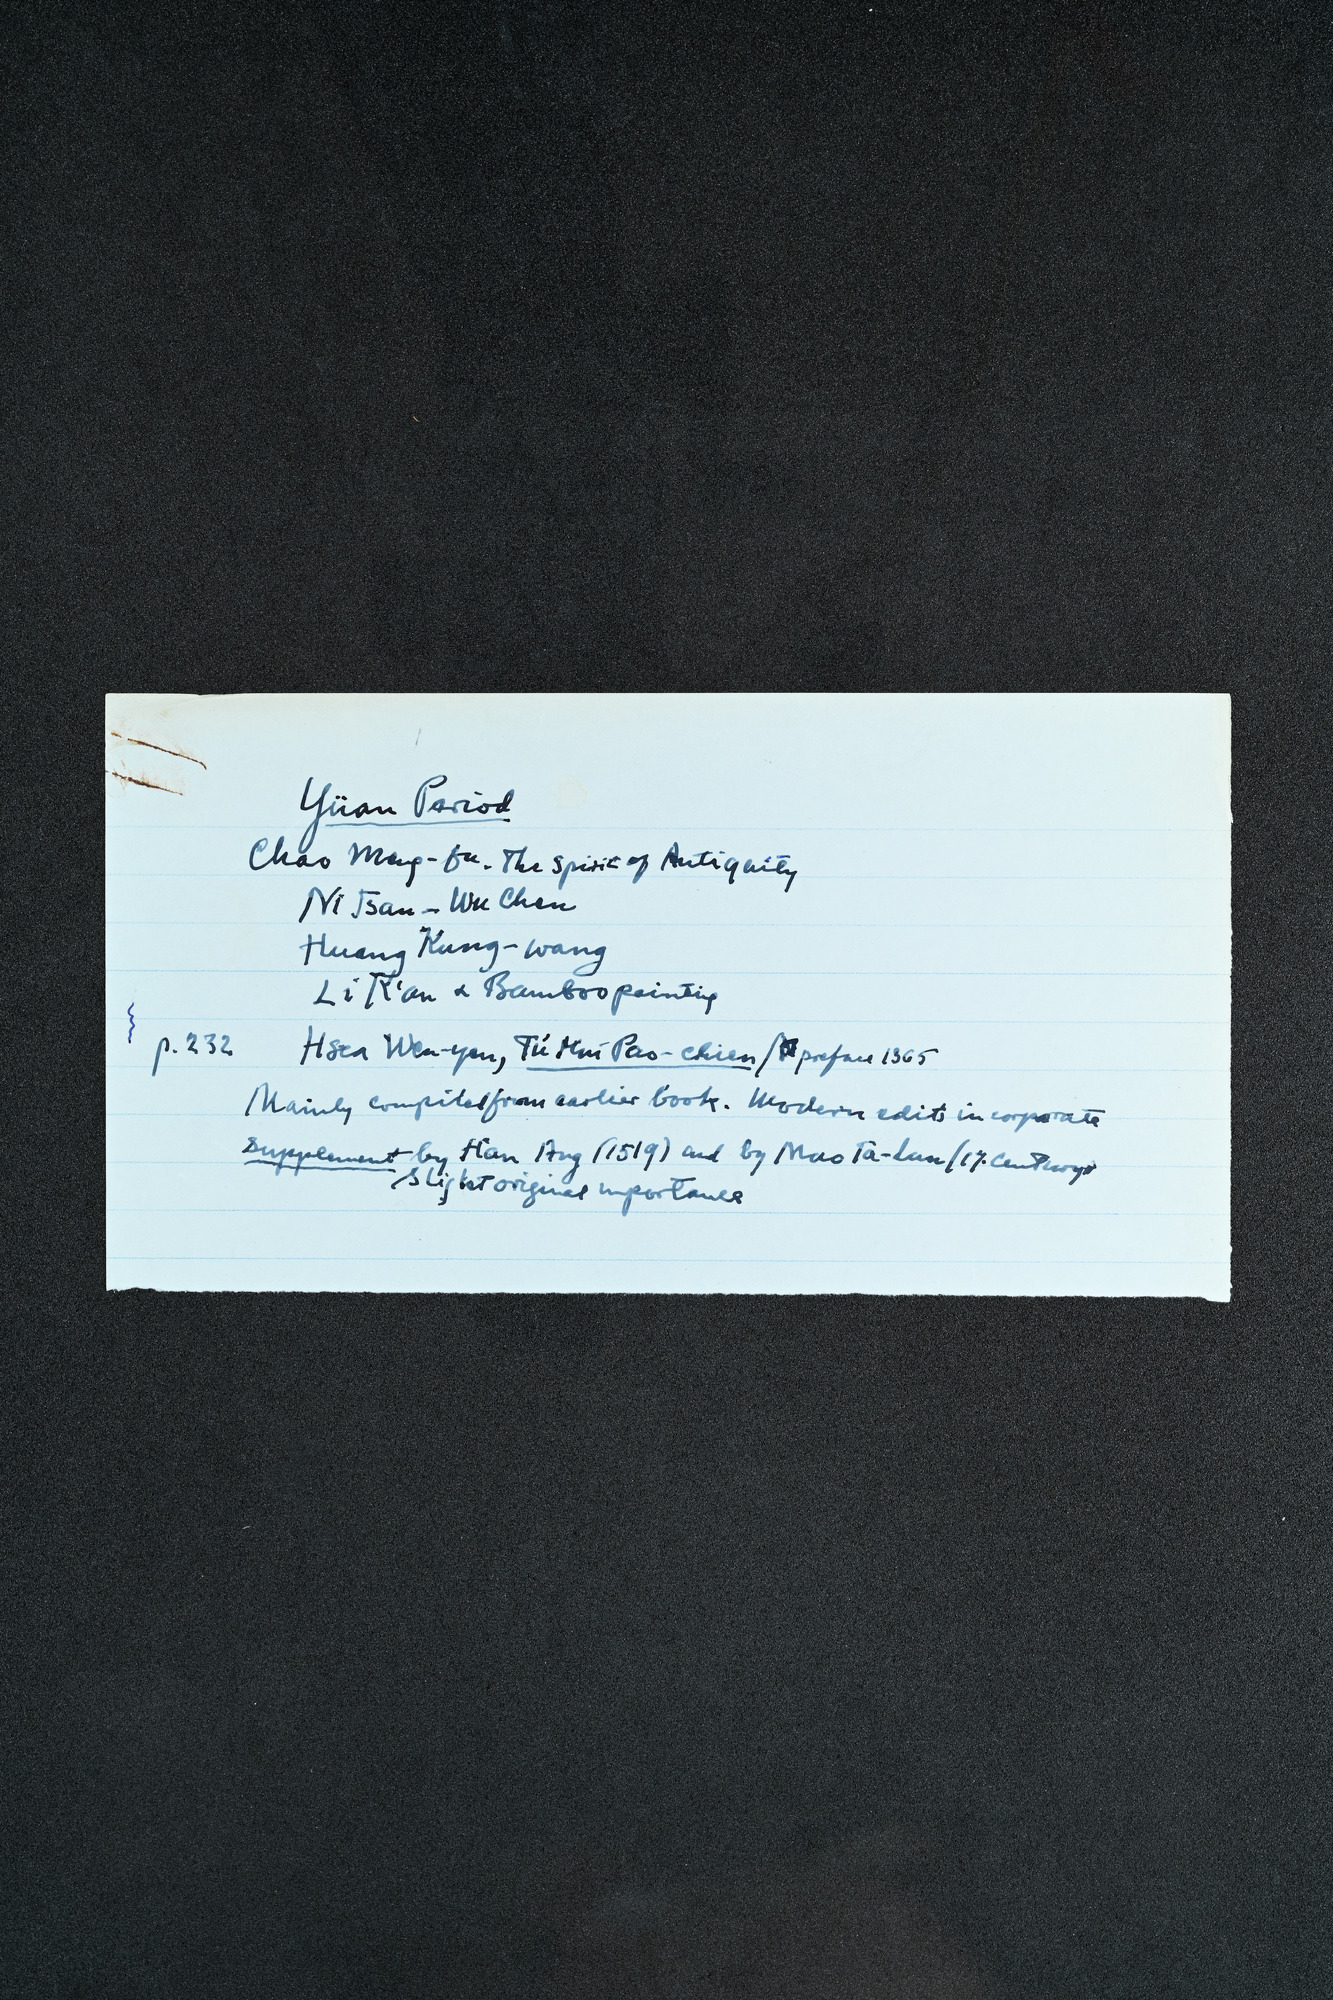 Yüan Period
Chao Meng-fu. The Spirit of Antiquity
Ni Tsan – Wu Chen
Huang Kung-wang
Li K'an & Bamboo painting
p. 232 Hsia Wen-yen, T'u Hui Pao-chien / preface 1365
Mainly compiled from earlier book. Modern edits incorporate
Supplement by Han Ang (1519) and by Mao Ta-lun (17. century)
Slight original importance